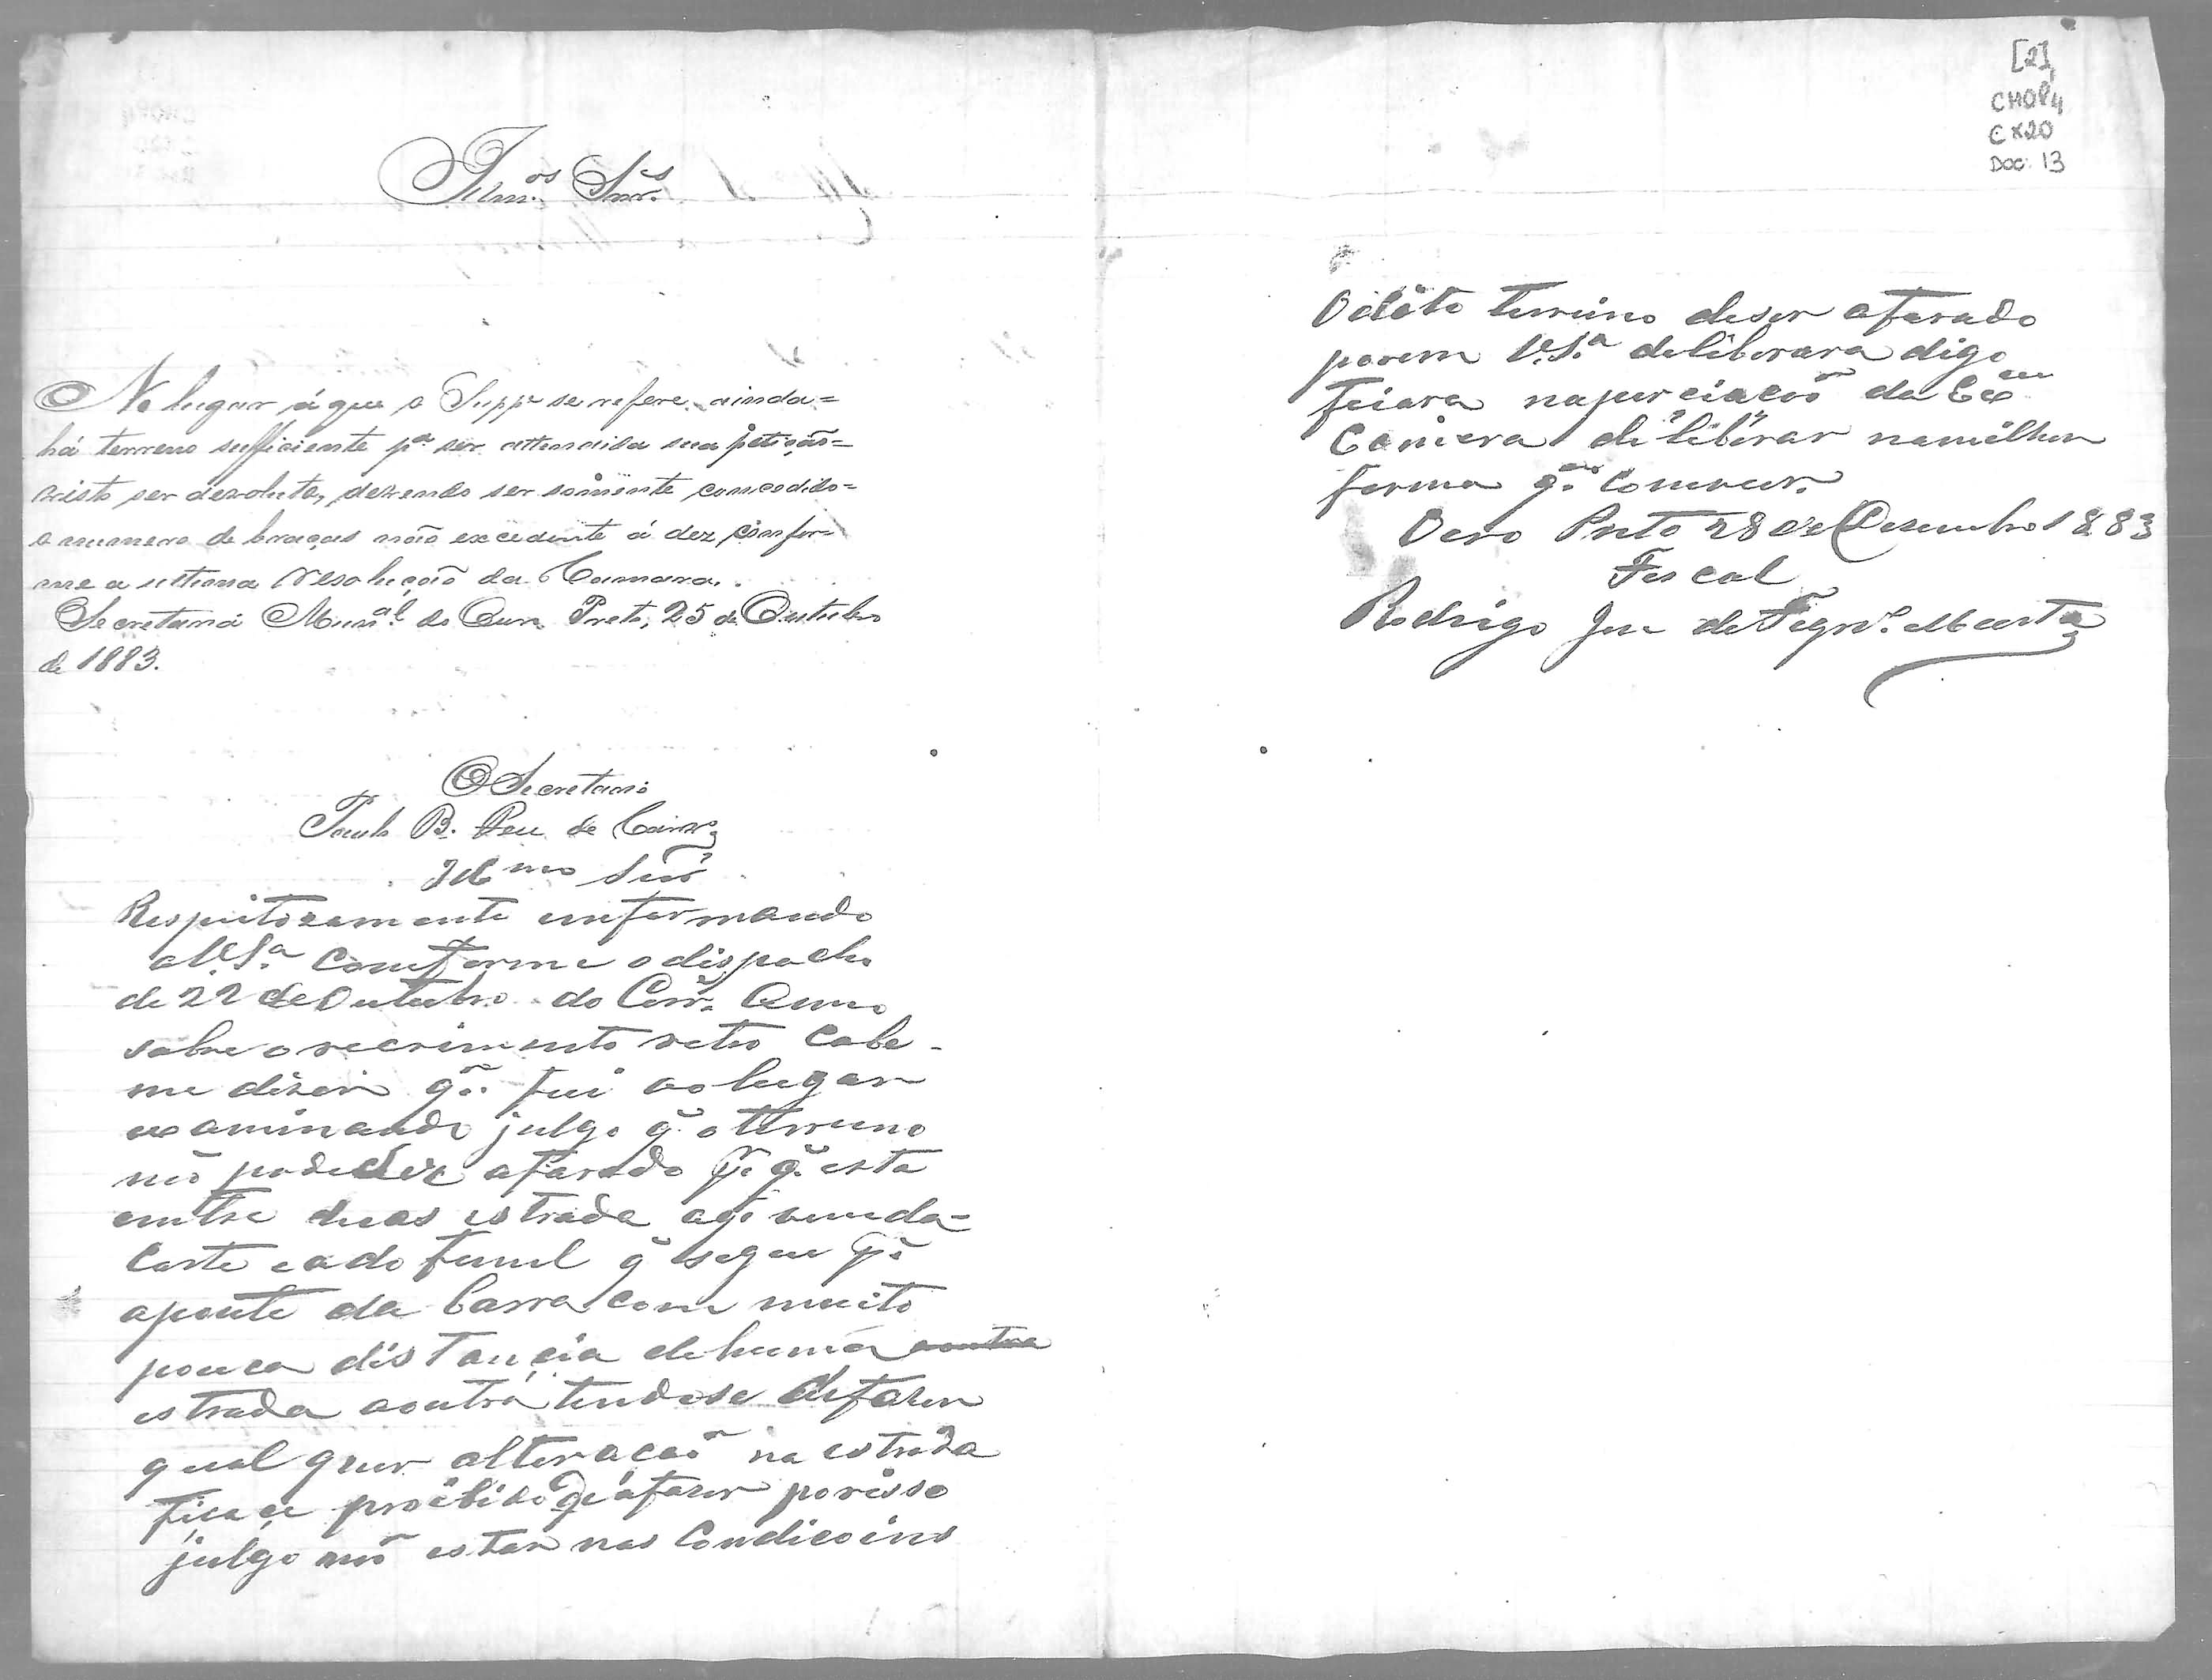 Illm.os Snr.s
No lugar á que o Supp.e se refere ainda=
há terreno sufficiente p.a ser attendida sua petição=
visto ser devoluto, devendo ser sómente concedido=
o numero de braças não excedente á dez, confor-
me a ultima resolução da Camara.
Secretaria Mun.al do Ouro Preto, 25 de Outubro
de 1883.
O Secretario
Paulo B. de
Ill mo Snr
Respeitozamente emformando
a V.S.a comforme o dispacho
de 22 de Outubro do Corr. Anno
sobre o recrimento retro Cabe-
me dizer q. fui ao lugar
examinando julgo q. o terreno
nõ pode ser aforado p. q. esta
emtre duas estrada
Corte e a do funil q segue p.
aponte da Barra com muito
pouca distancia dehuma aoutra
estrada aoutra tendose defazer
qual quer alteracaõ na estrada
fica ce proibido de afazer porisso
julgo nõ estar nas Condicoins
[2]
CMOP
CX20
DOC. 13
O dito terreno deser aforado
porem V.S.a deliberara digo
da Ex
Camera deliberar namilhor
forma q. Comvier.
Oero Preto 28 de Dezembro 1883
Fiscal
Rodrigo José de Figrd.o Murta